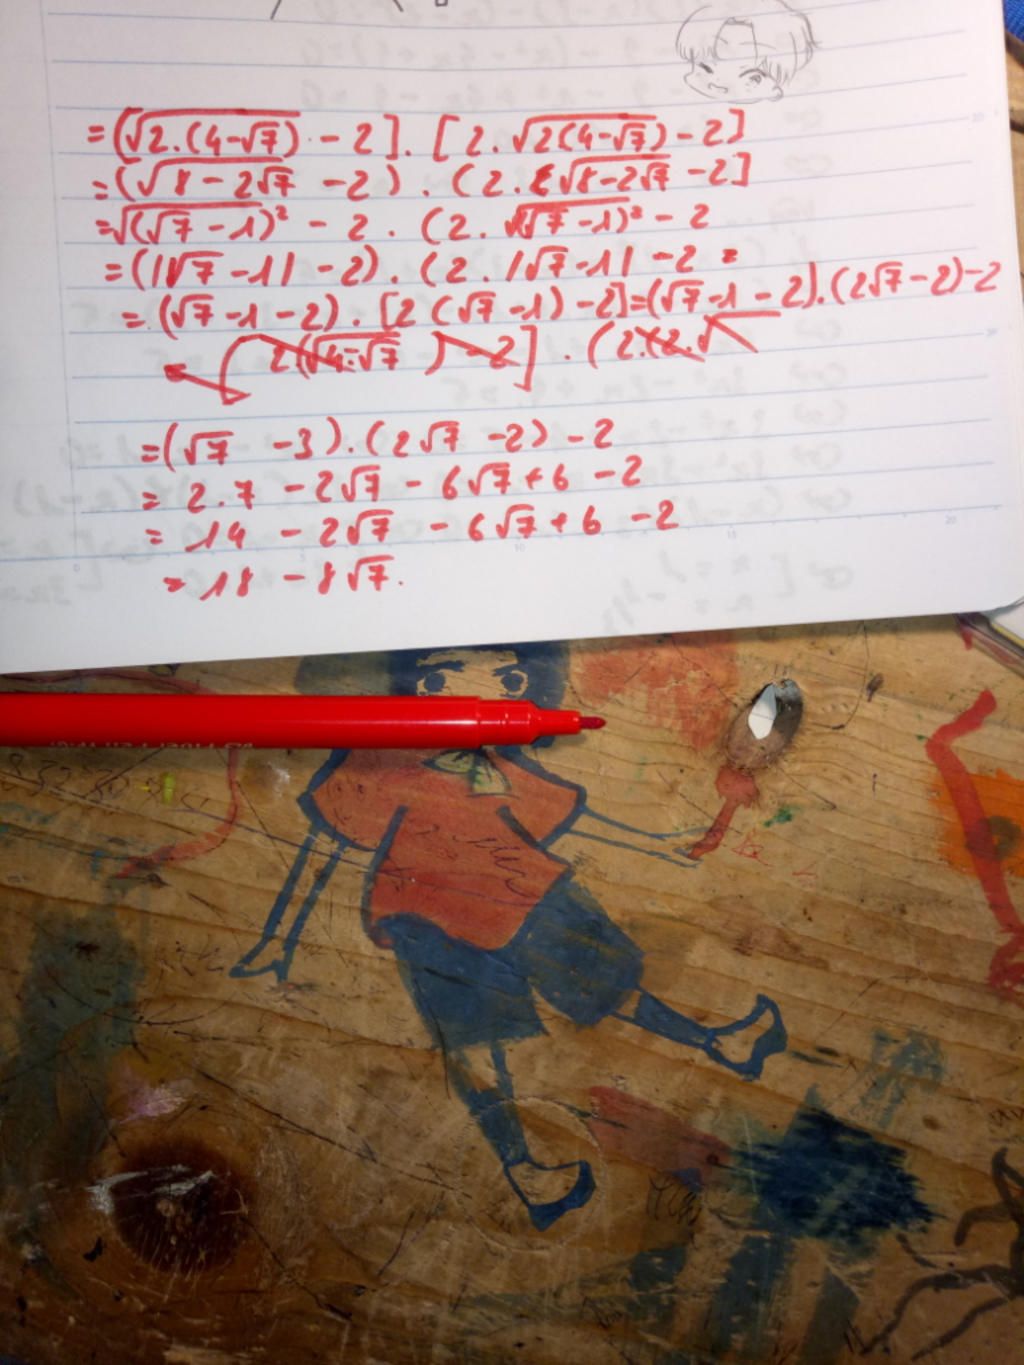 = (√2.(4-√7) - 2]. [2.√2(4-√7) - 2]
= (√8-2√7 -2) . (2.√8-2√7 -2]
=√(√7 -1)² - 2 . (2. √(√7-1)² - 2
= (|√7 -1| -2). (2.|√7-1| -2 =
= (√7-1-2). [2(√7-1)-2]=(√7-1-2].(2√7-2)-2
= ( 2(√4-√7 ) -2] . (2.(2.√
=(√7 -3).(2√7 -2) -2
= 2.7 -2√7 - 6√7+6 -2
= 14 - 2√7 - 6√7+6 -2
= 18 - 8√7.